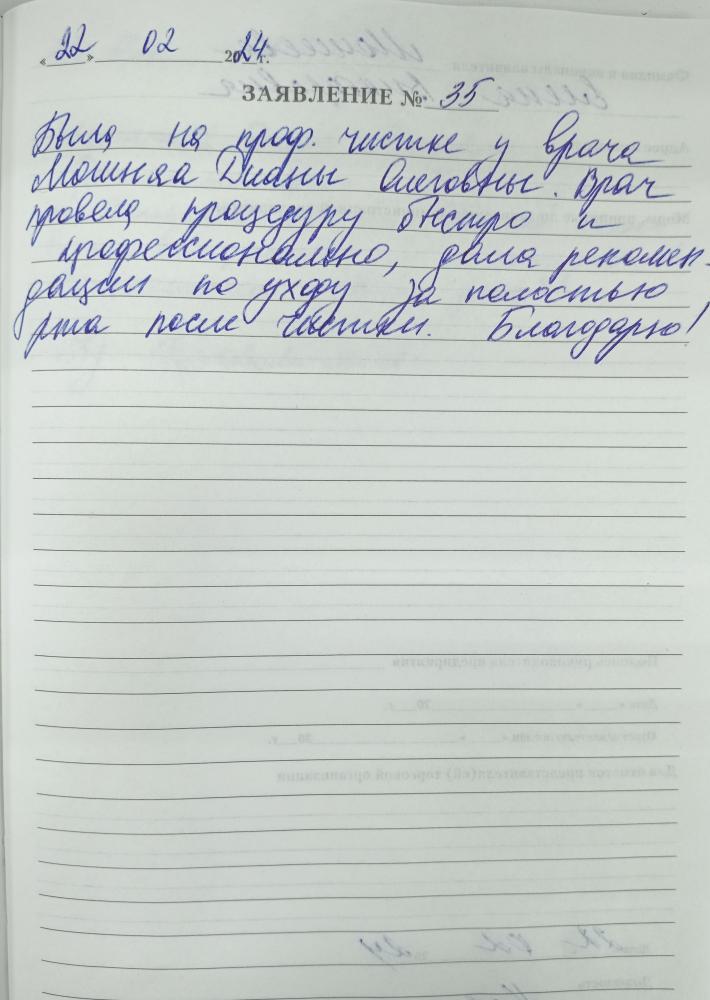 «22» 02 2024 г.
ЗАЯВЛЕНИЕ № 35
Была на проф. чистке у врача
Мошняа Дианы Олеговны. Врач
провела процедуру быстро и
профессионально, дала рекомен-
дации по уходу за полостью
рта после чистки. Благодарю!